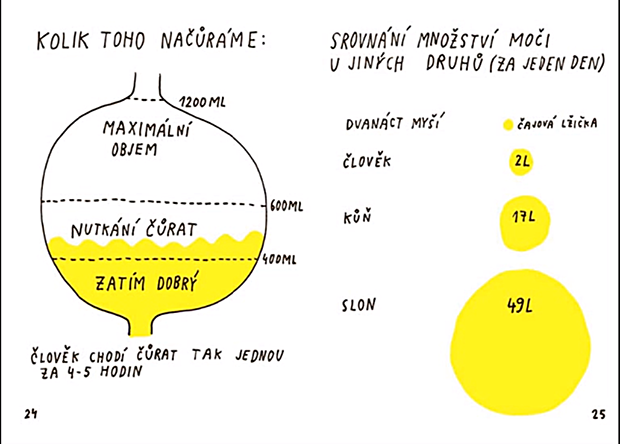 KOLIK TOHO NAČŮRÁME:
1200ML
MAXIMÁLNÍ
OBJEM
600ML
NUTKÁNÍ ČŮRAT
400ML
ZATÍM DOBRÝ
ČLOVĚK CHODÍ ČŮRAT TAK JEDNOU
ZA 4-5 HODIN
24
SROVNÁNÍ MNOŽSTVÍ MOČI
U JINÝCH DRUHŮ (ZA JEDEN DEN)
DVANÁCT MYŠÍ ČAJOVÁ LŽIČKA
ČLOVĚK 2L
KŮŇ 17L
SLON 49L
25